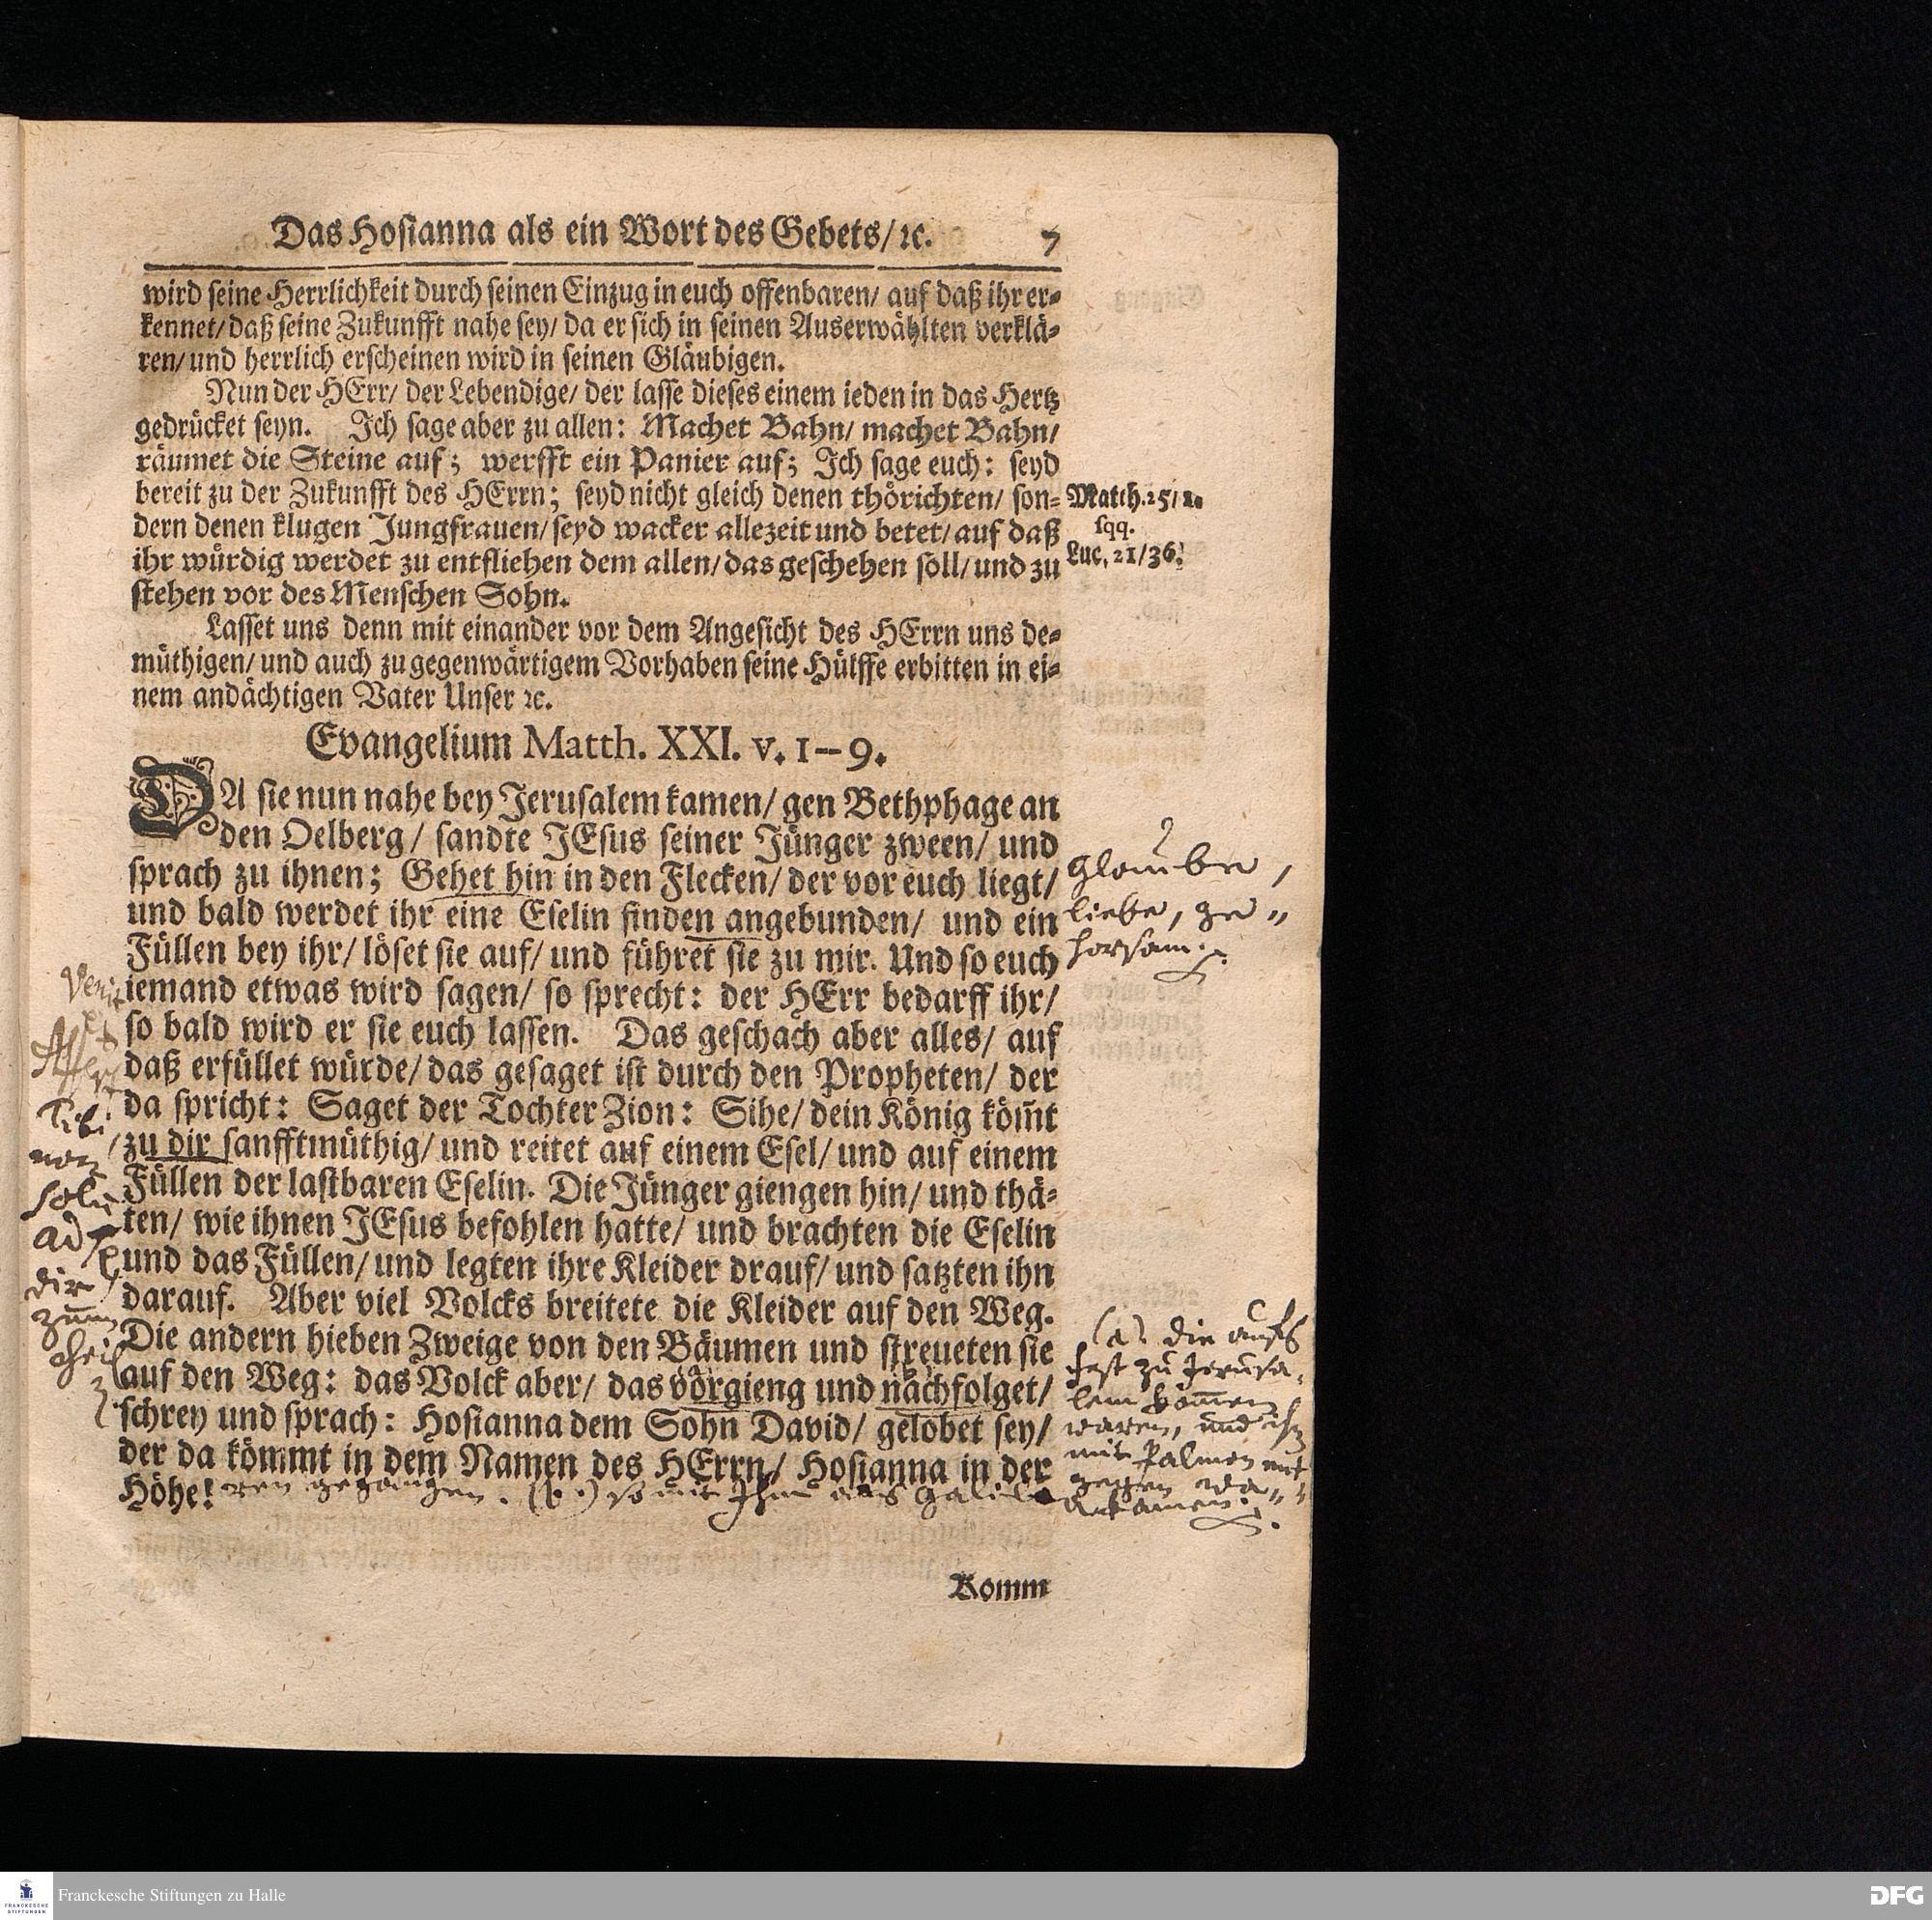 Das Hosianna als ein Wort des Gebets/ ꝛc. 7
wird seine Herrlichkeit durch seinen Einzug in euch offenbaren/ auf daß ihr er-
kennet/ daß seine Zukunfft nahe sey/ da er sich in seinen Auserwählten verklä-
ren/ und herrlich erscheinen wird in seinen Gläubigen.
Nun der HErr/ der Lebendige/ der lasse dieses einem ieden in das Hertz
gedrücket seyn. Ich sage aber zu allen: Machet Bahn/ machet Bahn/
räumet die Steine auf; werfft ein Panier auf; Ich sage euch: seyd
bereit zu der Zukunfft des HErrn; seyd nicht gleich denen thörichten/ son-
dern denen klugen Jungfrauen/ seyd wacker allezeit und betet/ auf daß
ihr würdig werdet zu entfliehen dem allen/ das geschehen soll/ und zu
stehen vor des Menschen Sohn.
Matth. 25/ 1.
sqq.
Luc. 21/36.
Lasset uns denn mit einander vor dem Angesicht des HErrn uns de-
müthigen/ und auch zu gegenwärtigem Vorhaben seine Hülffe erbitten in ei-
nem andächtigen Vater Unser ꝛc.
Evangelium Matth. XXI. v. 1-9.
DA sie nun nahe bey Jerusalem kamen/ gen Bethphage an
den Oelberg/ sandte JEsus seiner Jünger zween/ und
sprach zu ihnen; Gehet hin in den Flecken/ der vor euch liegt/
und bald werdet ihr eine Eselin finden angebunden/ und ein
Füllen bey ihr/ löset sie auf/ und führet sie zu mir. Und so euch
iemand etwas wird sagen/ so sprecht: der HErr bedarff ihr/
so bald wird er sie euch lassen. Das geschach aber alles/ auf
daß erfüllet würde/ das gesaget ist durch den Propheten/ der
da spricht: Saget der Tochter Zion: Sihe/ dein König köm̃t
zu dir sanfftmüthig/ und reitet auf einem Esel/ und auf einem
Füllen der lastbaren Eselin. Die Jünger giengen hin/ und thä-
ten/ wie ihnen JEsus befohlen hatte/ und brachten die Eselin
und das Füllen/ und legten ihre Kleider drauf/ und satzten ihn
darauf. Aber viel Volcks breitete die Kleider auf den Weg.
Die andern hieben Zweige von den Bäumen und streueten sie
auf den Weg: das Volck aber/ das vorgieng und nachfolget/
schrey und sprach: Hosianna dem Sohn David/ gelobet sey/
der da kömmt in dem Namen des HErrn/ Hosianna in der
Höhe!
glauben,
liebe, ge-
horsam.
tibi
non
ad
dir
zum
(a). die aufs
fest zu Jerusa-
lem kom̅en
waren, und ihm
mit Palmen ent
gegen wa-
ren gegangen. (b.) so mit Ihm aus Galilaea
kamen.
Komm
Franckesche Stiftungen zu Halle
FRANCKESCHE
STIFTUNGEN
DFG